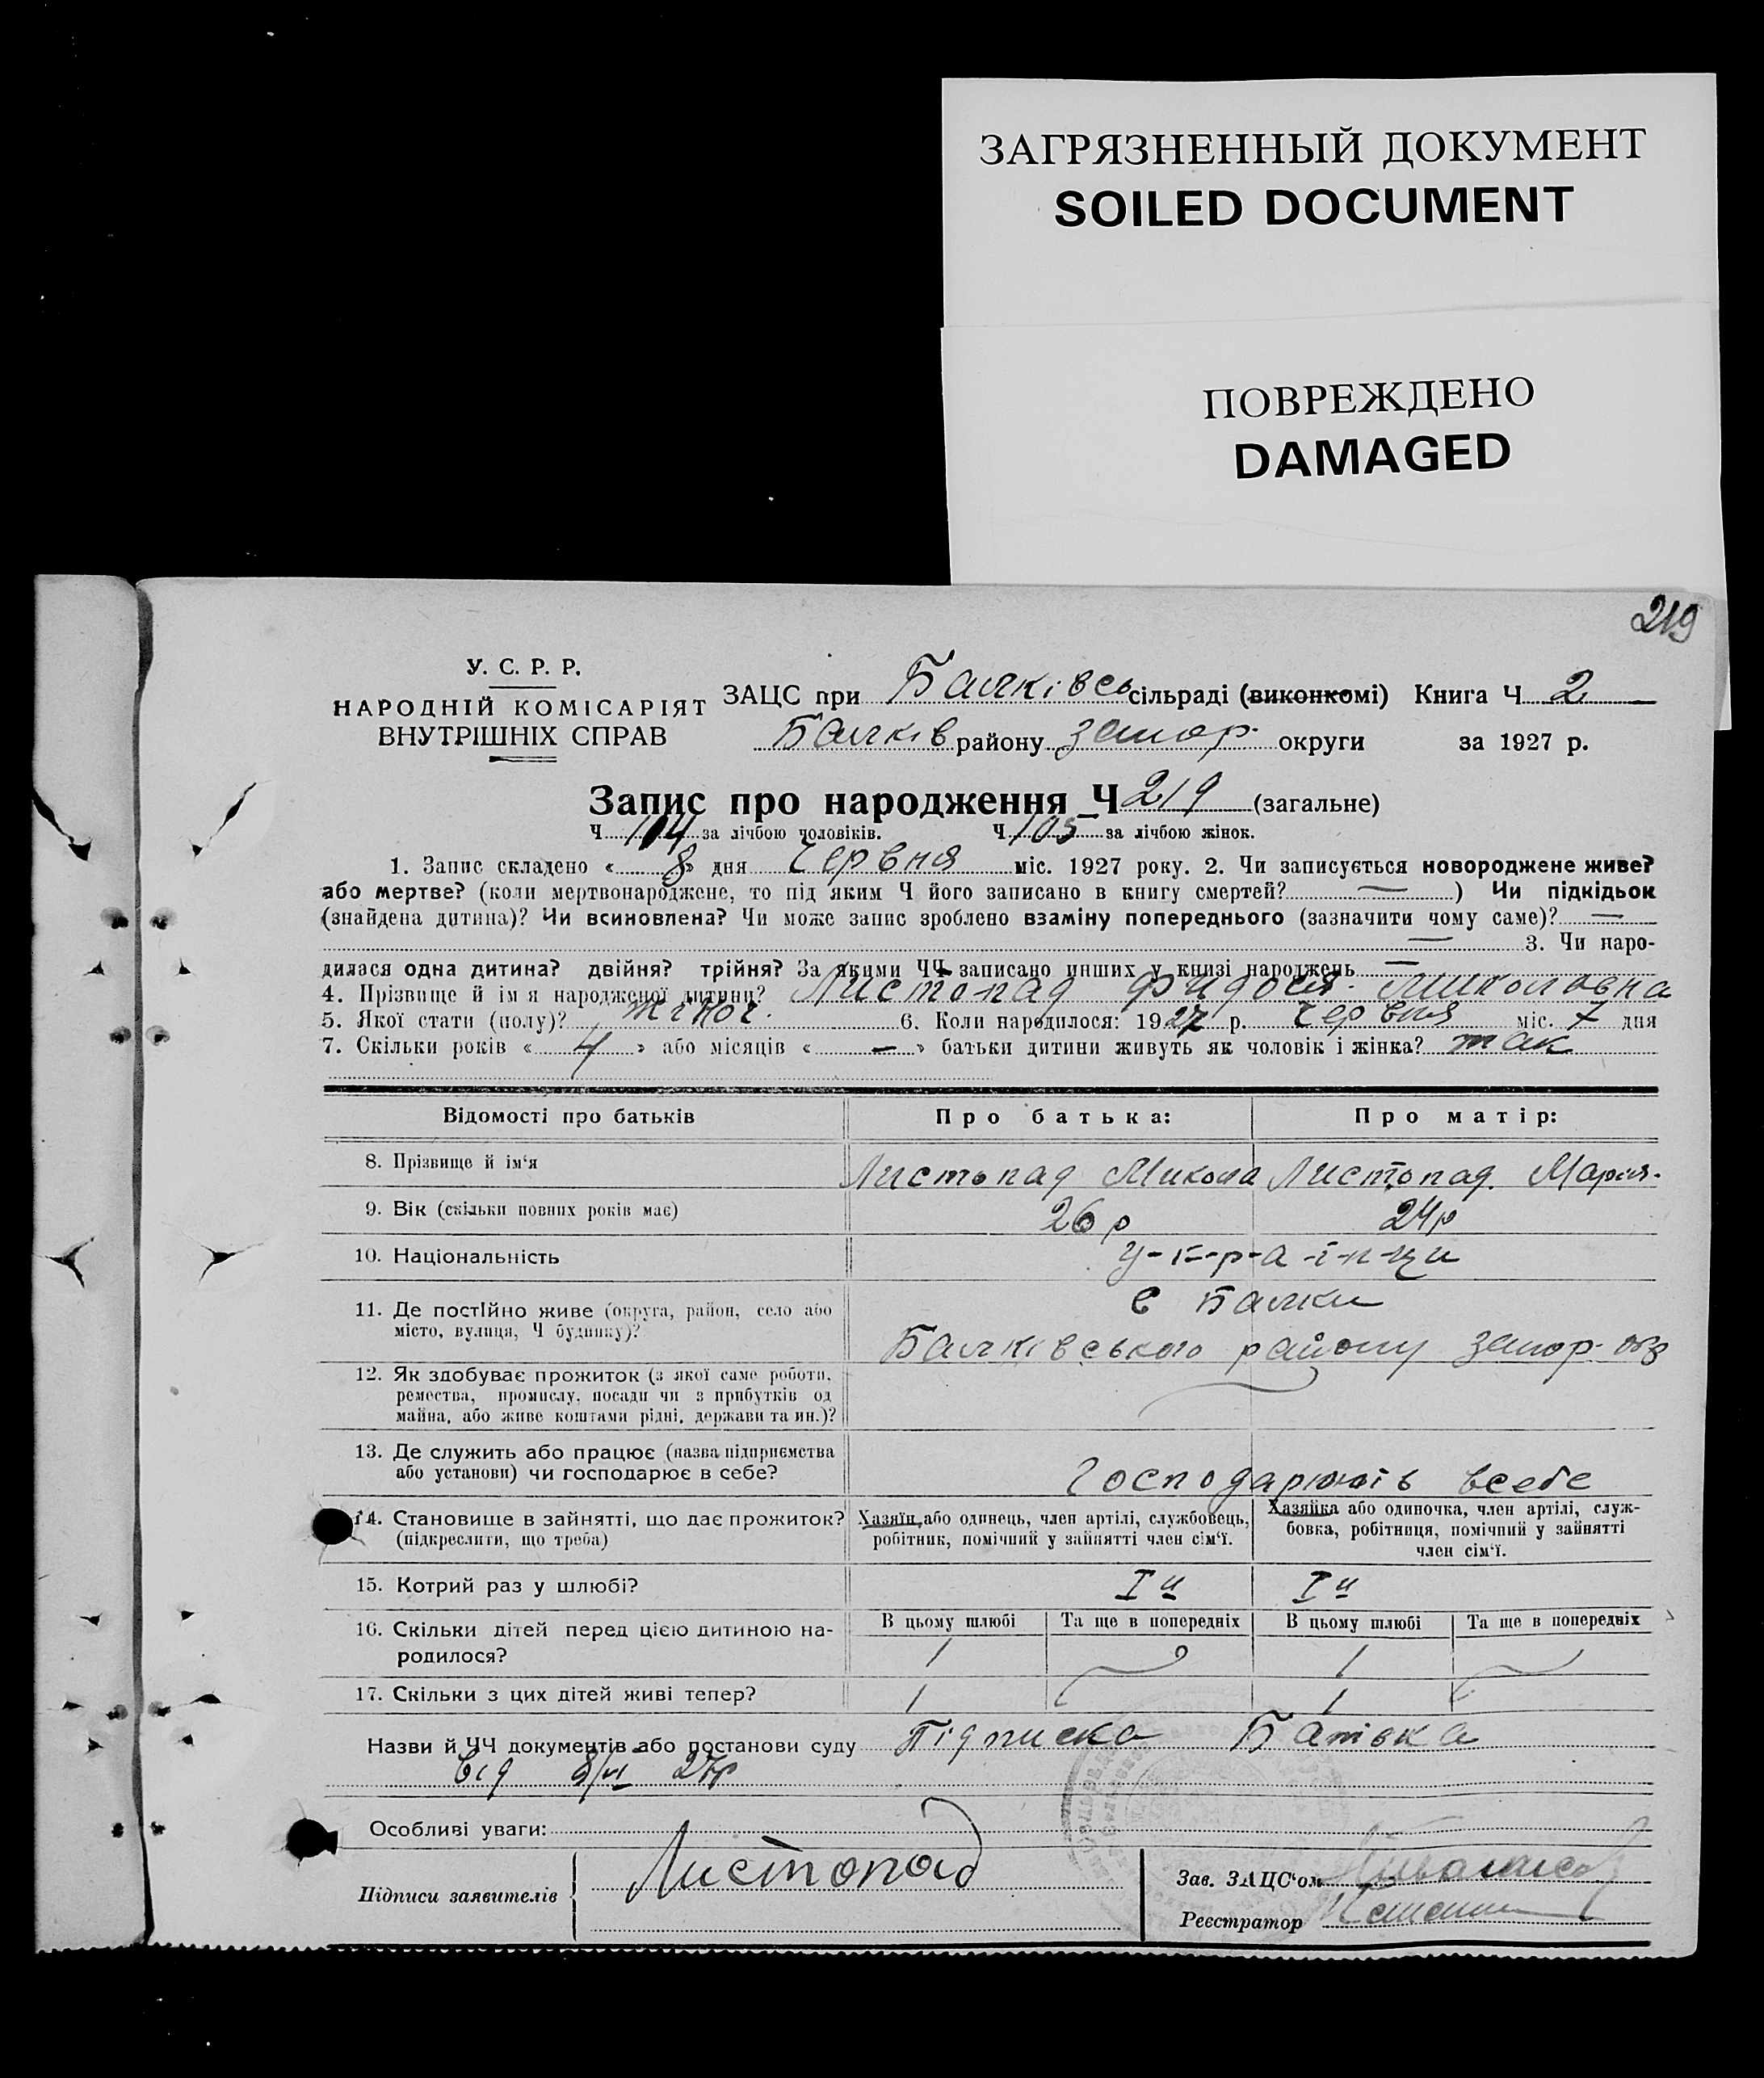 ЗАГРЯЗНЕННЫЙ ДОКУМЕНТ
SOILED DOCUMENT
ПОВРЕЖДЕНО
DAMAGED
219
У. С. Р. Р.
НАРОДНІЙ КОМІСАРІЯТ
ВНУТРІШНІХ СПРАВ
ЗАЦС при Балківсь сільраді (виконкомі) Книга Ч 2
Балків району запор. округи за 1927 р.
Запис про народження Ч 219 (загальне)
Ч 114 за лічбою чоловіків. Ч 105 за лічбою жінок.
1. Запис складено « 8 » дня Червня міс. 1927 року. 2. Чи записується новороджене живе?
або мертве? (коли мертвонароджене, то під яким Ч його записано в книгу смертей? — ) Чи підкідьок
(знайдена дитина)? Чи всиновлена? Чи може запис зроблено взаміну попереднього (зазначити чому саме)? —
— 3. Чи наро-
дилася одна дитина? двійня? трійня? За якими ЧЧ записано инших у книзі народжень —
4. Прізвище й ім я народженої дитини? Листопад Фидося Миколовна
5. Якої стати (полу)? жіноч. 6. Коли народилося: 1927 р. Червня міс. 7 дня
7. Скільки років « 4 » або місяців « — » батьки дитини живуть як чоловік і жінка? так
Відомості про батьків Про батька: Про матір:
8. Прізвище й ім'я Листопад Микола Листопад Мария.
9. Вік (скільки повних років має) 26 р 24 р
10. Національність у-к-р-а-ї-н-ци
11. Де постійно живе (округа, район, село або
місто, вулиця, Ч будинку)?
с Балки
Балківського району запор.
12. Як здобуває прожиток (з якої саме роботи,
ремества, промислу, посади чи з прибутків од
майна, або живе коштами рідні, держави та ин.)?
13. Де служить або працює (назва підприємства
або установи) чи господарює в себе?
Господарюють всебе
14. Становище в зайнятті, що дає прожиток?
(підкреслити, що треба)
Хазяїн, або одинець, член артілі, службовець,
робітник, помічний у зайнятті член сім'ї.
Хазяйка або одиночка, член артілі, служ-
бовка, робітниця, помічний у зайнятті
член сім'ї.
15. Котрий раз у шлюбі? I й I й
16. Скільки дітей перед цією дитиною на-
родилося?
В цьому шлюбі Та ще в попередніх В цьому шлюбі Та ще в попередніх
1 1
17. Скільки з цих дітей живі тепер? 1 1
Назви й ЧЧ документів або постанови суду Підписка Батька
Від 8/VI 27р
Особливі уваги:
Підписи заявителів Листопад
Зав. ЗАЦС'ом
Реєстратор